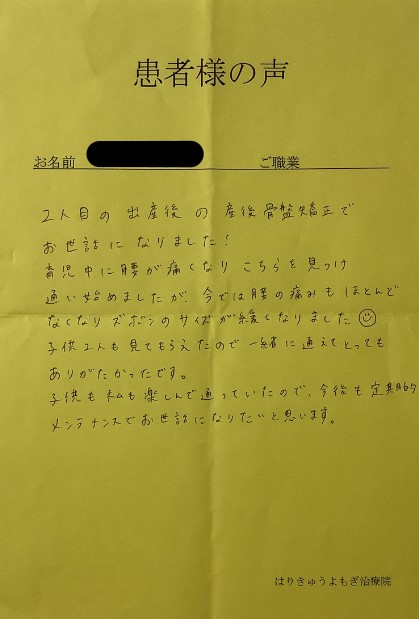 患者様の声
お名前 ご職業
2人目の出産後の産後骨盤矯正で
お世話になりました!
育児中に腰が痛くなり こちらを見つけ
通い始めましたが、今では腰の痛みもほとんど
なくなりズボンのサイズが緩くなりました☺
子供2人も見てもらえたので一緒に通えてとっても
ありがたかったです。
子供も私も楽しんで通っていたので、今後も定期的
メンテナンスでお世話になりたいと思います。
はりきゅうよもぎ治療院